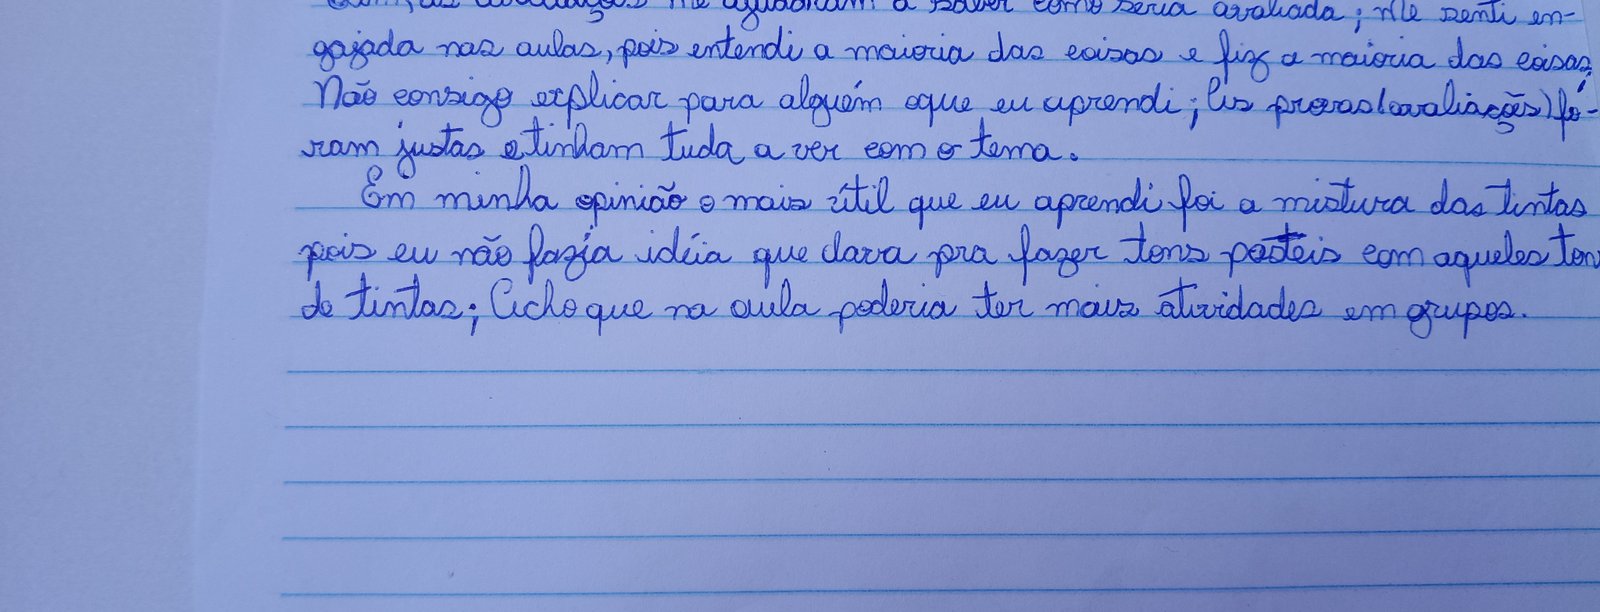 me ajudaram a saber como seria avaliada; Me senti en-
gajada nas aulas, pois entendi a maioria das coisas e fiz a maioria das coisas.
Não consigo explicar para alguém oque eu aprendi; As provas (avaliações) fo-
ram justas e tinham tuda a ver com o tema.
Em minha opinião o mais útil que eu aprendi foi a mistura das tintas
pois eu não fazia idéia que dava pra fazer tons pasteis com aqueles ton
de tintas; Acho que na aula poderia ter mais atividades em grupos.